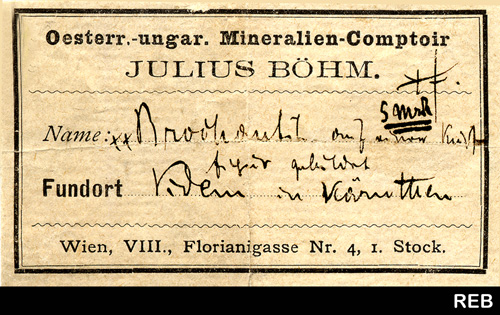 Oesterr.-ungar. Mineralien-Comptoir
JULIUS BÖHM.
5 Mark
Name: xx Brochantit auf einer
gebildet
Fundort in Kärnthen
Wien, VIII., Florianigasse Nr. 4, 1. Stock.
REB